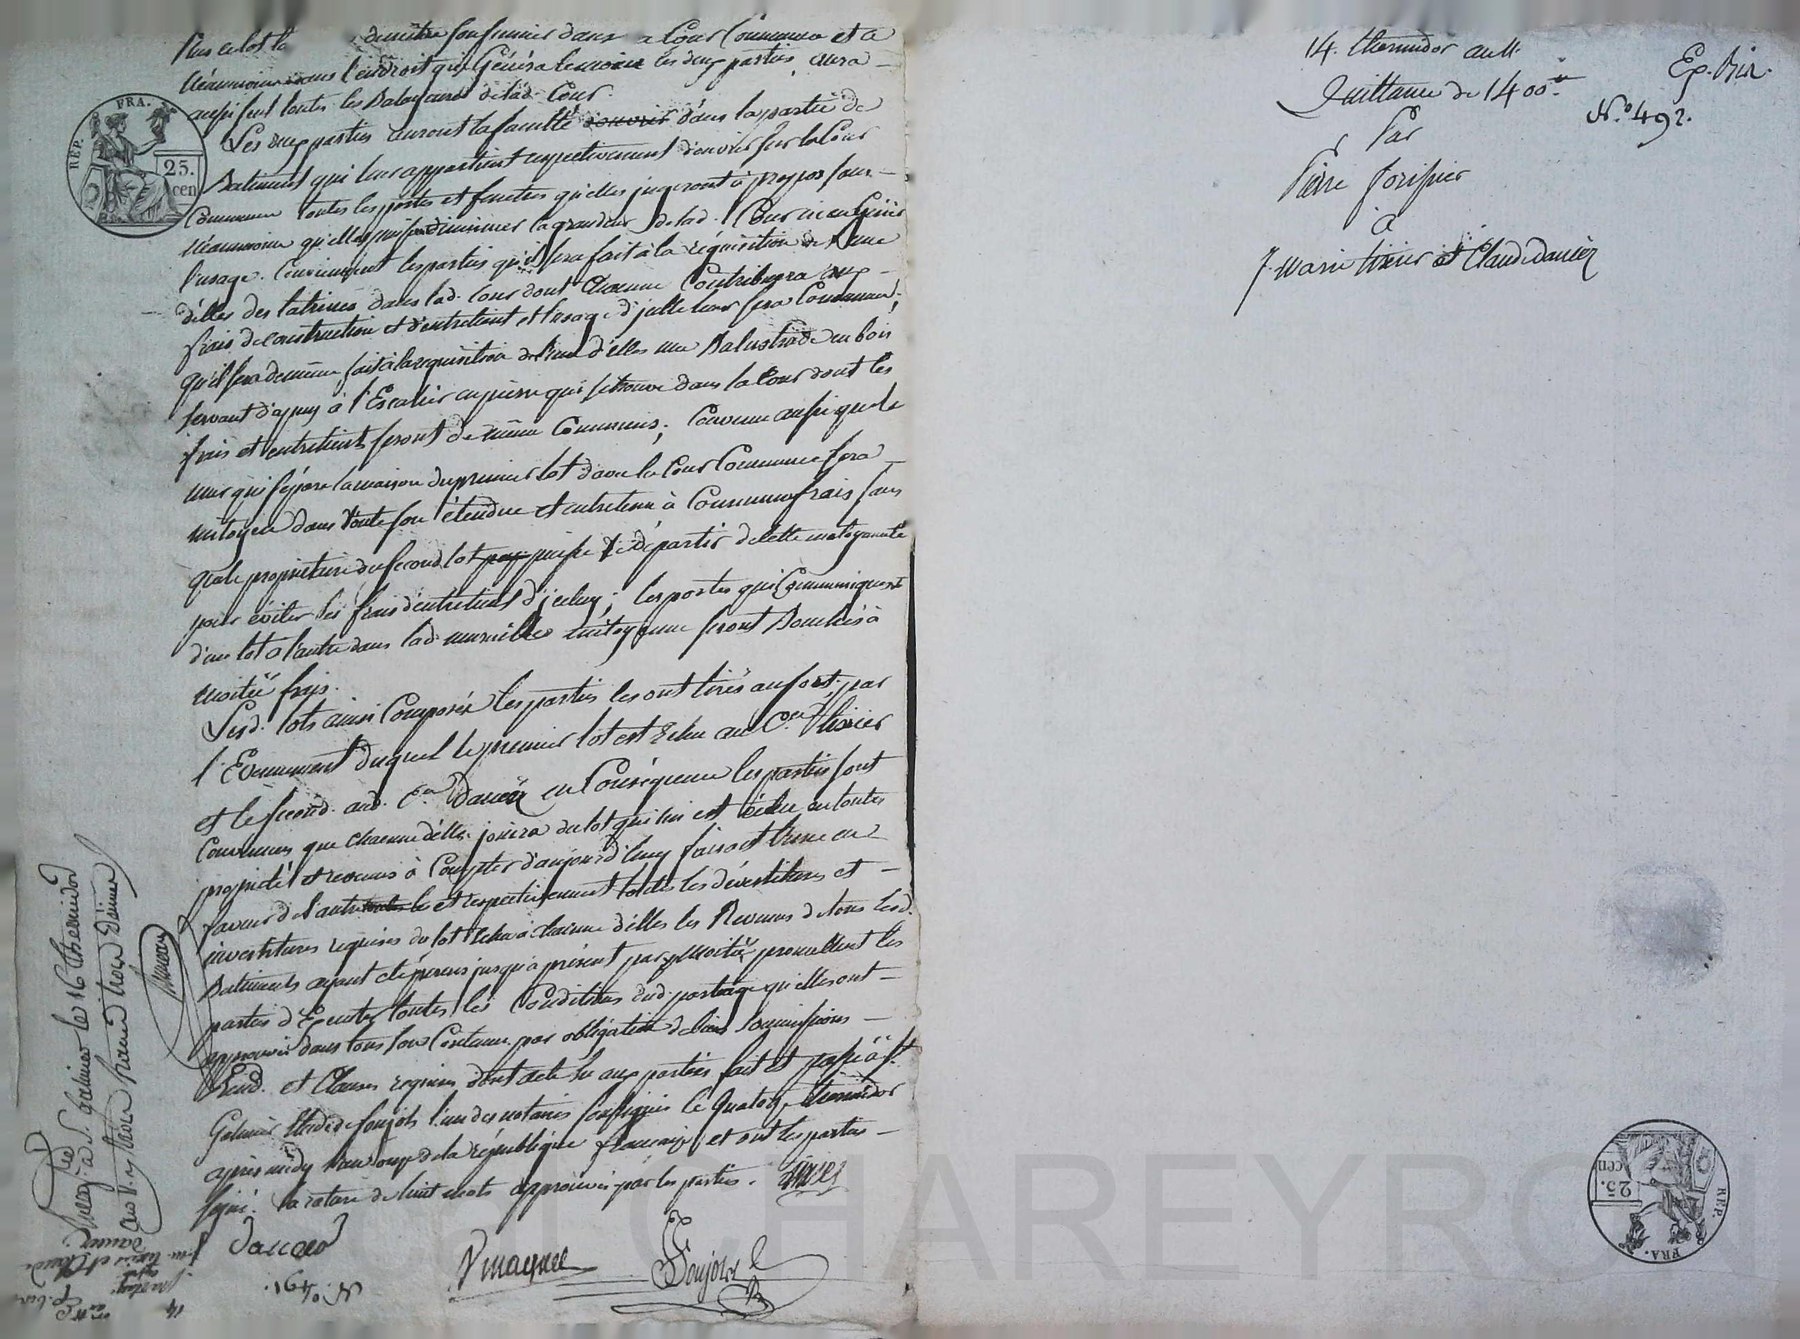 dans la Cour Commune et a
néanmoins dans l'endroit qui Gênera le moins les deux parties, aura
aussi seul toutes les Balayures de lad. Cour.
Les deux parties auront la faculté d'ouvrir dans la partie de
Batiment qui leur appartient respectivement d'ouvrir sur la Cour
Commune toutes les portes et fenetres qu'elles jugeront à propos sans
néanmoins qu'elles puissent diminuer la grandeur de lad. Cour ni en Gêner
l'usage. Conviennent les parties qu'il sera fait à la réquisition de l'une
d'elles des latrines dans lad. Cour dont Chacune Contribuera aux
frais de construction et d'entretient et l'usage d'icelle leur sera Commun;
qu'il sera de même fait à la réquisition de l'une d'elles une Balustrade en bois
servant d'apuy à l'Escalier en pierre qui se trouve dans la Cour dont les
frais et entretient seront de même Communs; Convenu aussi que le
mur qui sépare la maison du premier lot d'avec la Cour Commune sera
mitoyen dans toute son étendue et entretenu à Communs frais sans
que le propriétaire du second lot puisse se départir de cette mitoyenneté
pour éviter les frais d'entretient d'icelui; les portes qui Communiquent
d'un lot à l'autre dans lad. muraille mitoyenne seront Bouchées à
moitié frais.
Lesd. lots ainsi Composés les parties les ont tirés au sort, par
l'Evenement duquel le premier lot est Echu au C.en Tixier
et le second aud. C.en Danier en Conséquence les parties sont
Convenues que chacune d'elles jouira du lot qui lui est échu en toute
propriété et revenus à Compter d'aujourd'huy faisant l'une en
faveur de l'autre et respectivement toutes les dévestitures et
investitures requises du lot Echu à chacune d'elles les Revenus de tous lesd.
Batiments ayant été perçus jusqu'à présent par moitié promettent les
parties d'Executer toutes les Conditions dud. partage qu'elles ont
approuvé dans tout son Contenu par obligation de biens Soumissions
Rend. et Clauses requises dont acte lu aux parties fait et passé à St.
Galmier Etude de Poujols l'un des notaires soussignés le Quatorze thermidor
après midy l'an onze de la république française, et ont les parties
signé. la rature de huit mots approuvée par les parties.
Danier
Poujols
N.o 491.
Galmier le 16 thermidor
14. thermidor an 11.
Quittance de 1400.tt
Par
Pierre forissier
à
J. Marie tixier et Claude danier
Ex. Bin.
N.o 492.
REP. FRA.
25.
cen
REP. FRA.
25.
cen
CHARFYRON